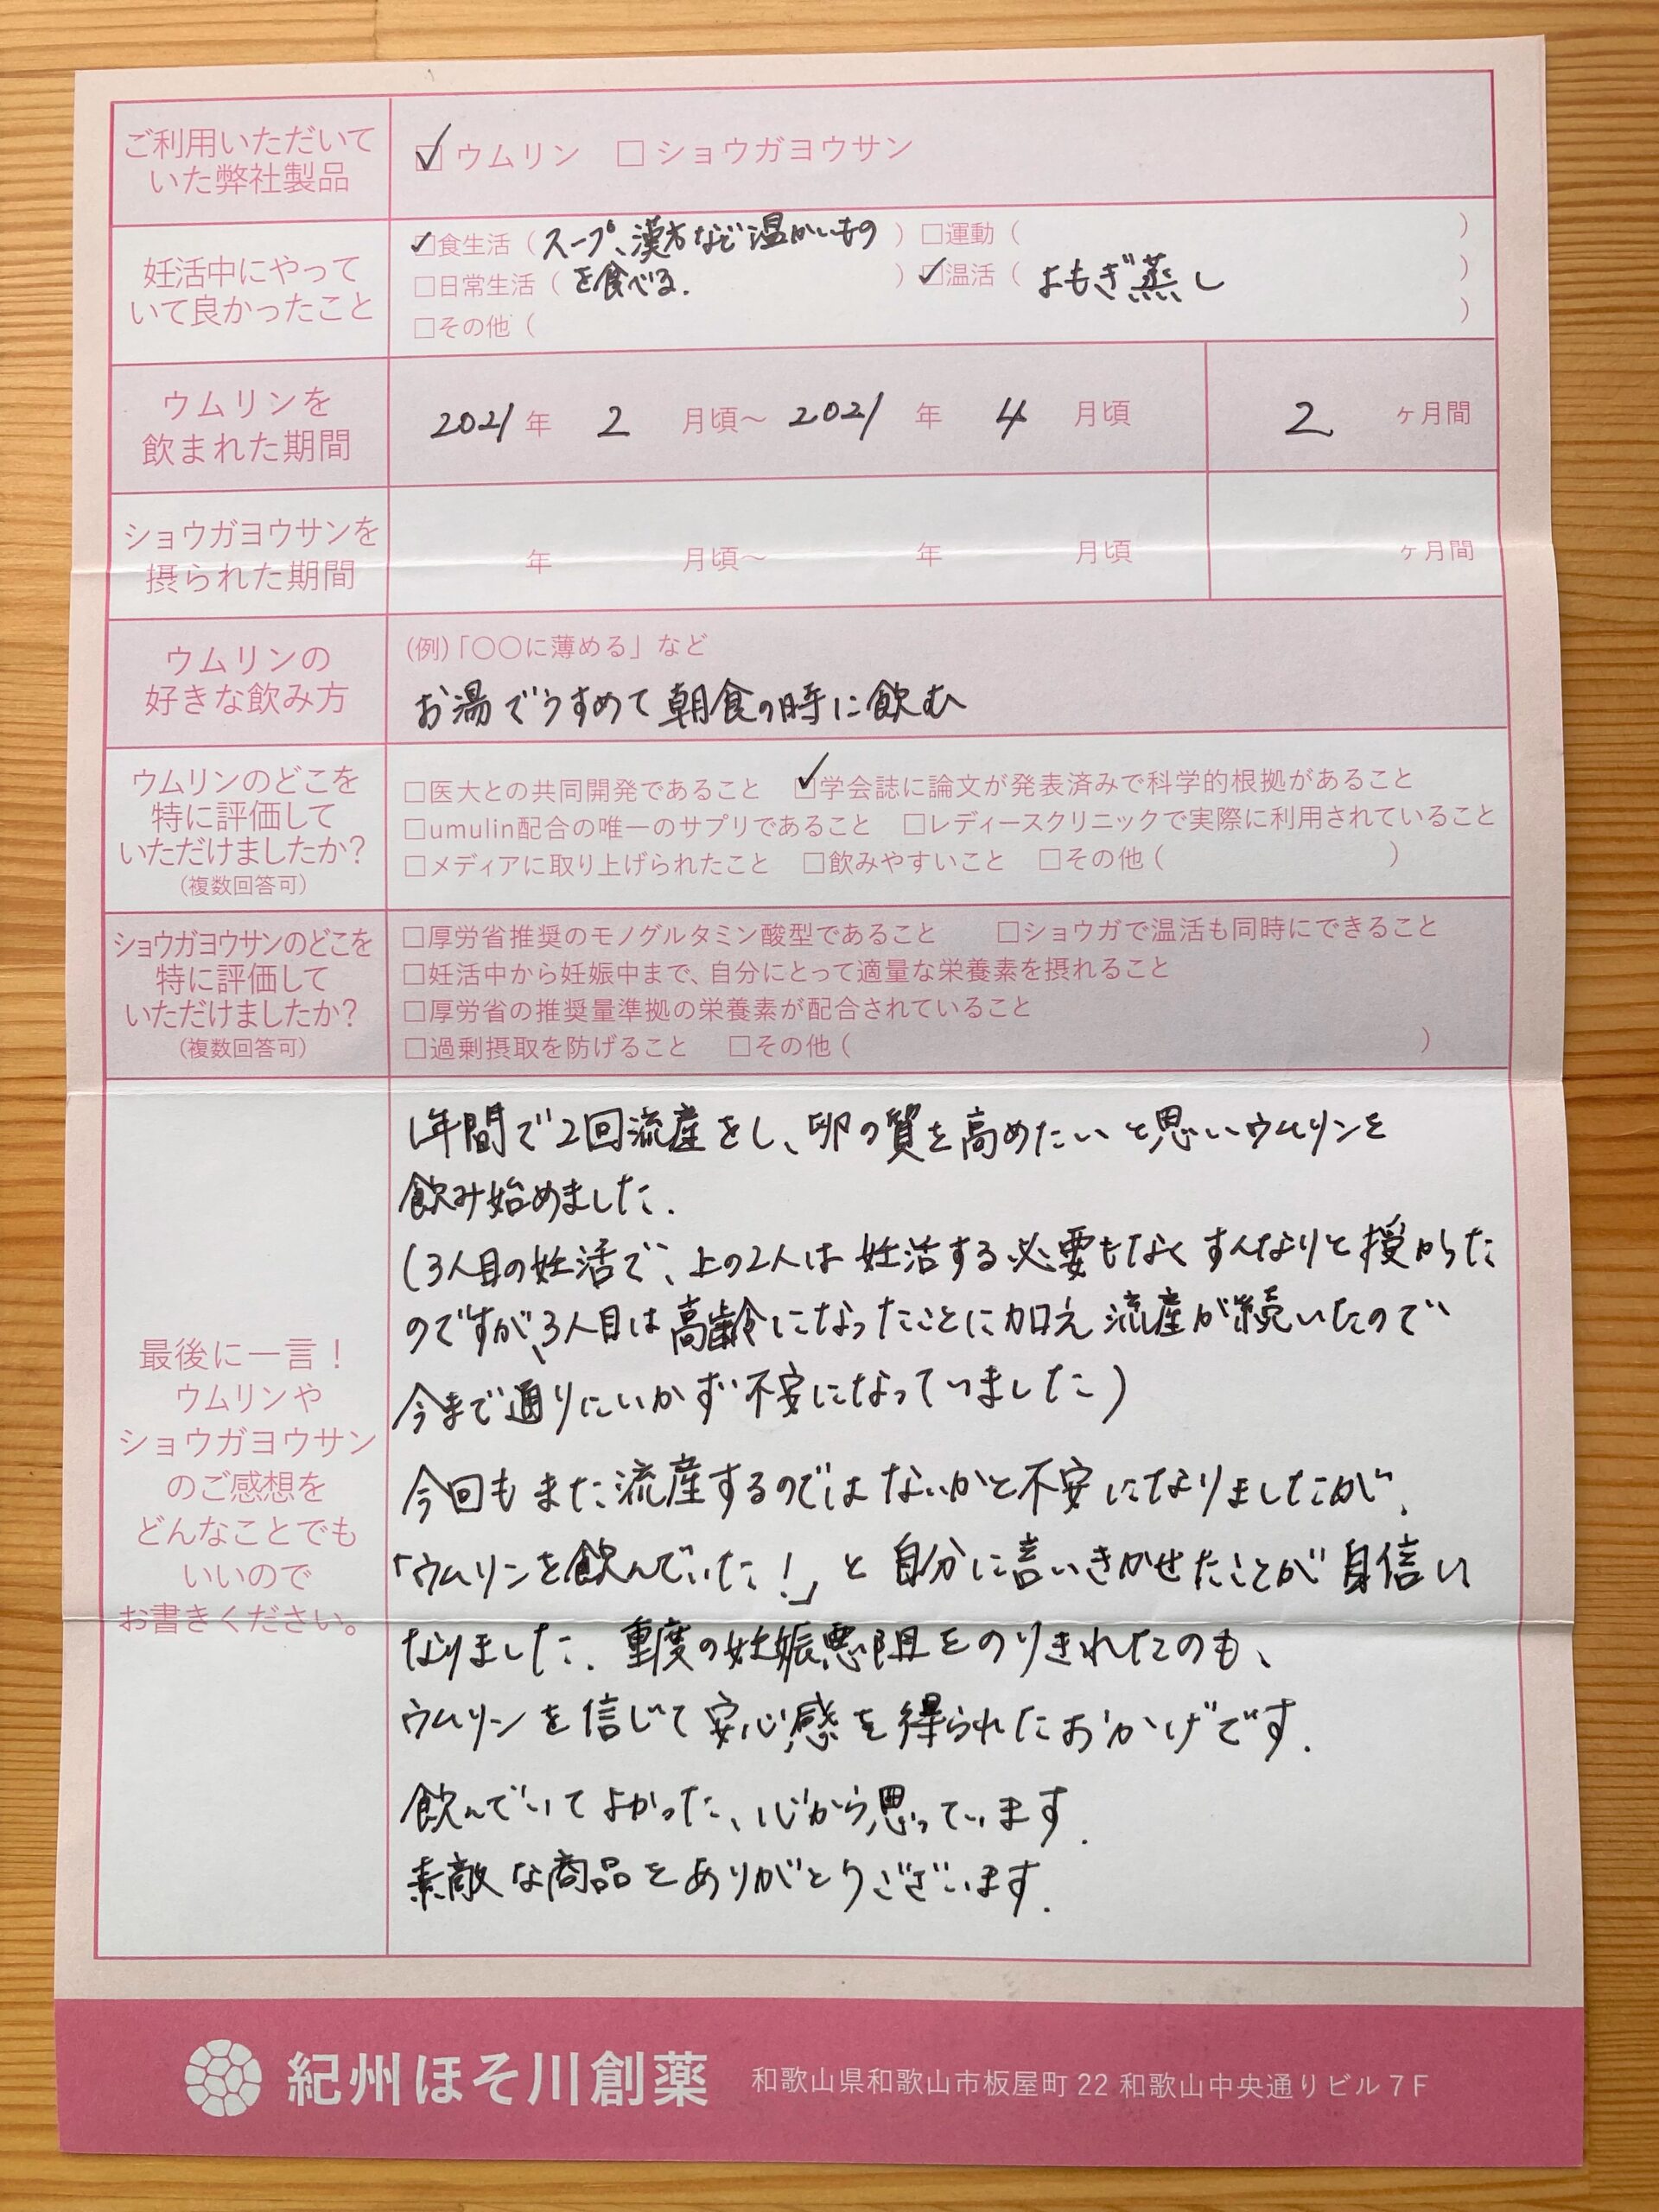 ご利用いただいて
いた弊社製品
☑ウムリン □ショウガヨウサン
妊活中にやって
いて良かったこと
☑食生活（スープ、漢方など温かいもの）□運動（ ）
□日常生活（を食べる.）☑温活（よもぎ蒸し）
□その他（ ）
ウムリンを
飲まれた期間
2021年 2月頃～2021年 4月頃 2ヶ月間
ショウガヨウサンを
摂られた期間
年 月頃～ 年 月頃 ヶ月間
ウムリンの
好きな飲み方
(例)「〇〇に薄める」など
お湯でうすめて朝食の時に飲む
ウムリンのどこを
特に評価して
いただけましたか?
(複数回答可)
□医大との共同開発であること ☑学会誌に論文が発表済みで科学的根拠があること
□umulin配合の唯一のサプリであること □レディースクリニックで実際に利用されていること
□メディアに取り上げられたこと □飲みやすいこと □その他（ ）
ショウガヨウサンのどこを
特に評価して
いただけましたか?
(複数回答可)
□厚労省推奨のモノグルタミン酸型であること □ショウガで温活も同時にできること
□妊活中から妊娠中まで、自分にとって適量な栄養素を摂れること
□厚労省の推奨量準拠の栄養素が配合されていること
□過剰摂取を防げること □その他（ ）
最後に一言！
ウムリンや
ショウガヨウサン
のご感想を
どんなことでも
いいので
お書きください。
1年間で2回流産をし、卵の質を高めたいと思いウムリンを
飲み始めました.
(3人目の妊活で、上の2人は妊活する必要もなくすんなりと授かった
のですが、3人目は高齢になったことに加え流産が続いたので
今まで通りにいかず不安になっていました)
今回もまた流産するのではないかと不安になりましたが、
「ウムリンを飲んでいた！」と自分に言いきかせたことが自信に
なりました. 重度の妊娠悪阻をのりきれたのも、
ウムリンを信じて安心感を得られたおかげです.
飲んでいてよかった、心から思っています.
素敵な商品をありがとうございます.
紀州ほそ川創薬 和歌山県和歌山市板屋町22 和歌山中央通りビル7F